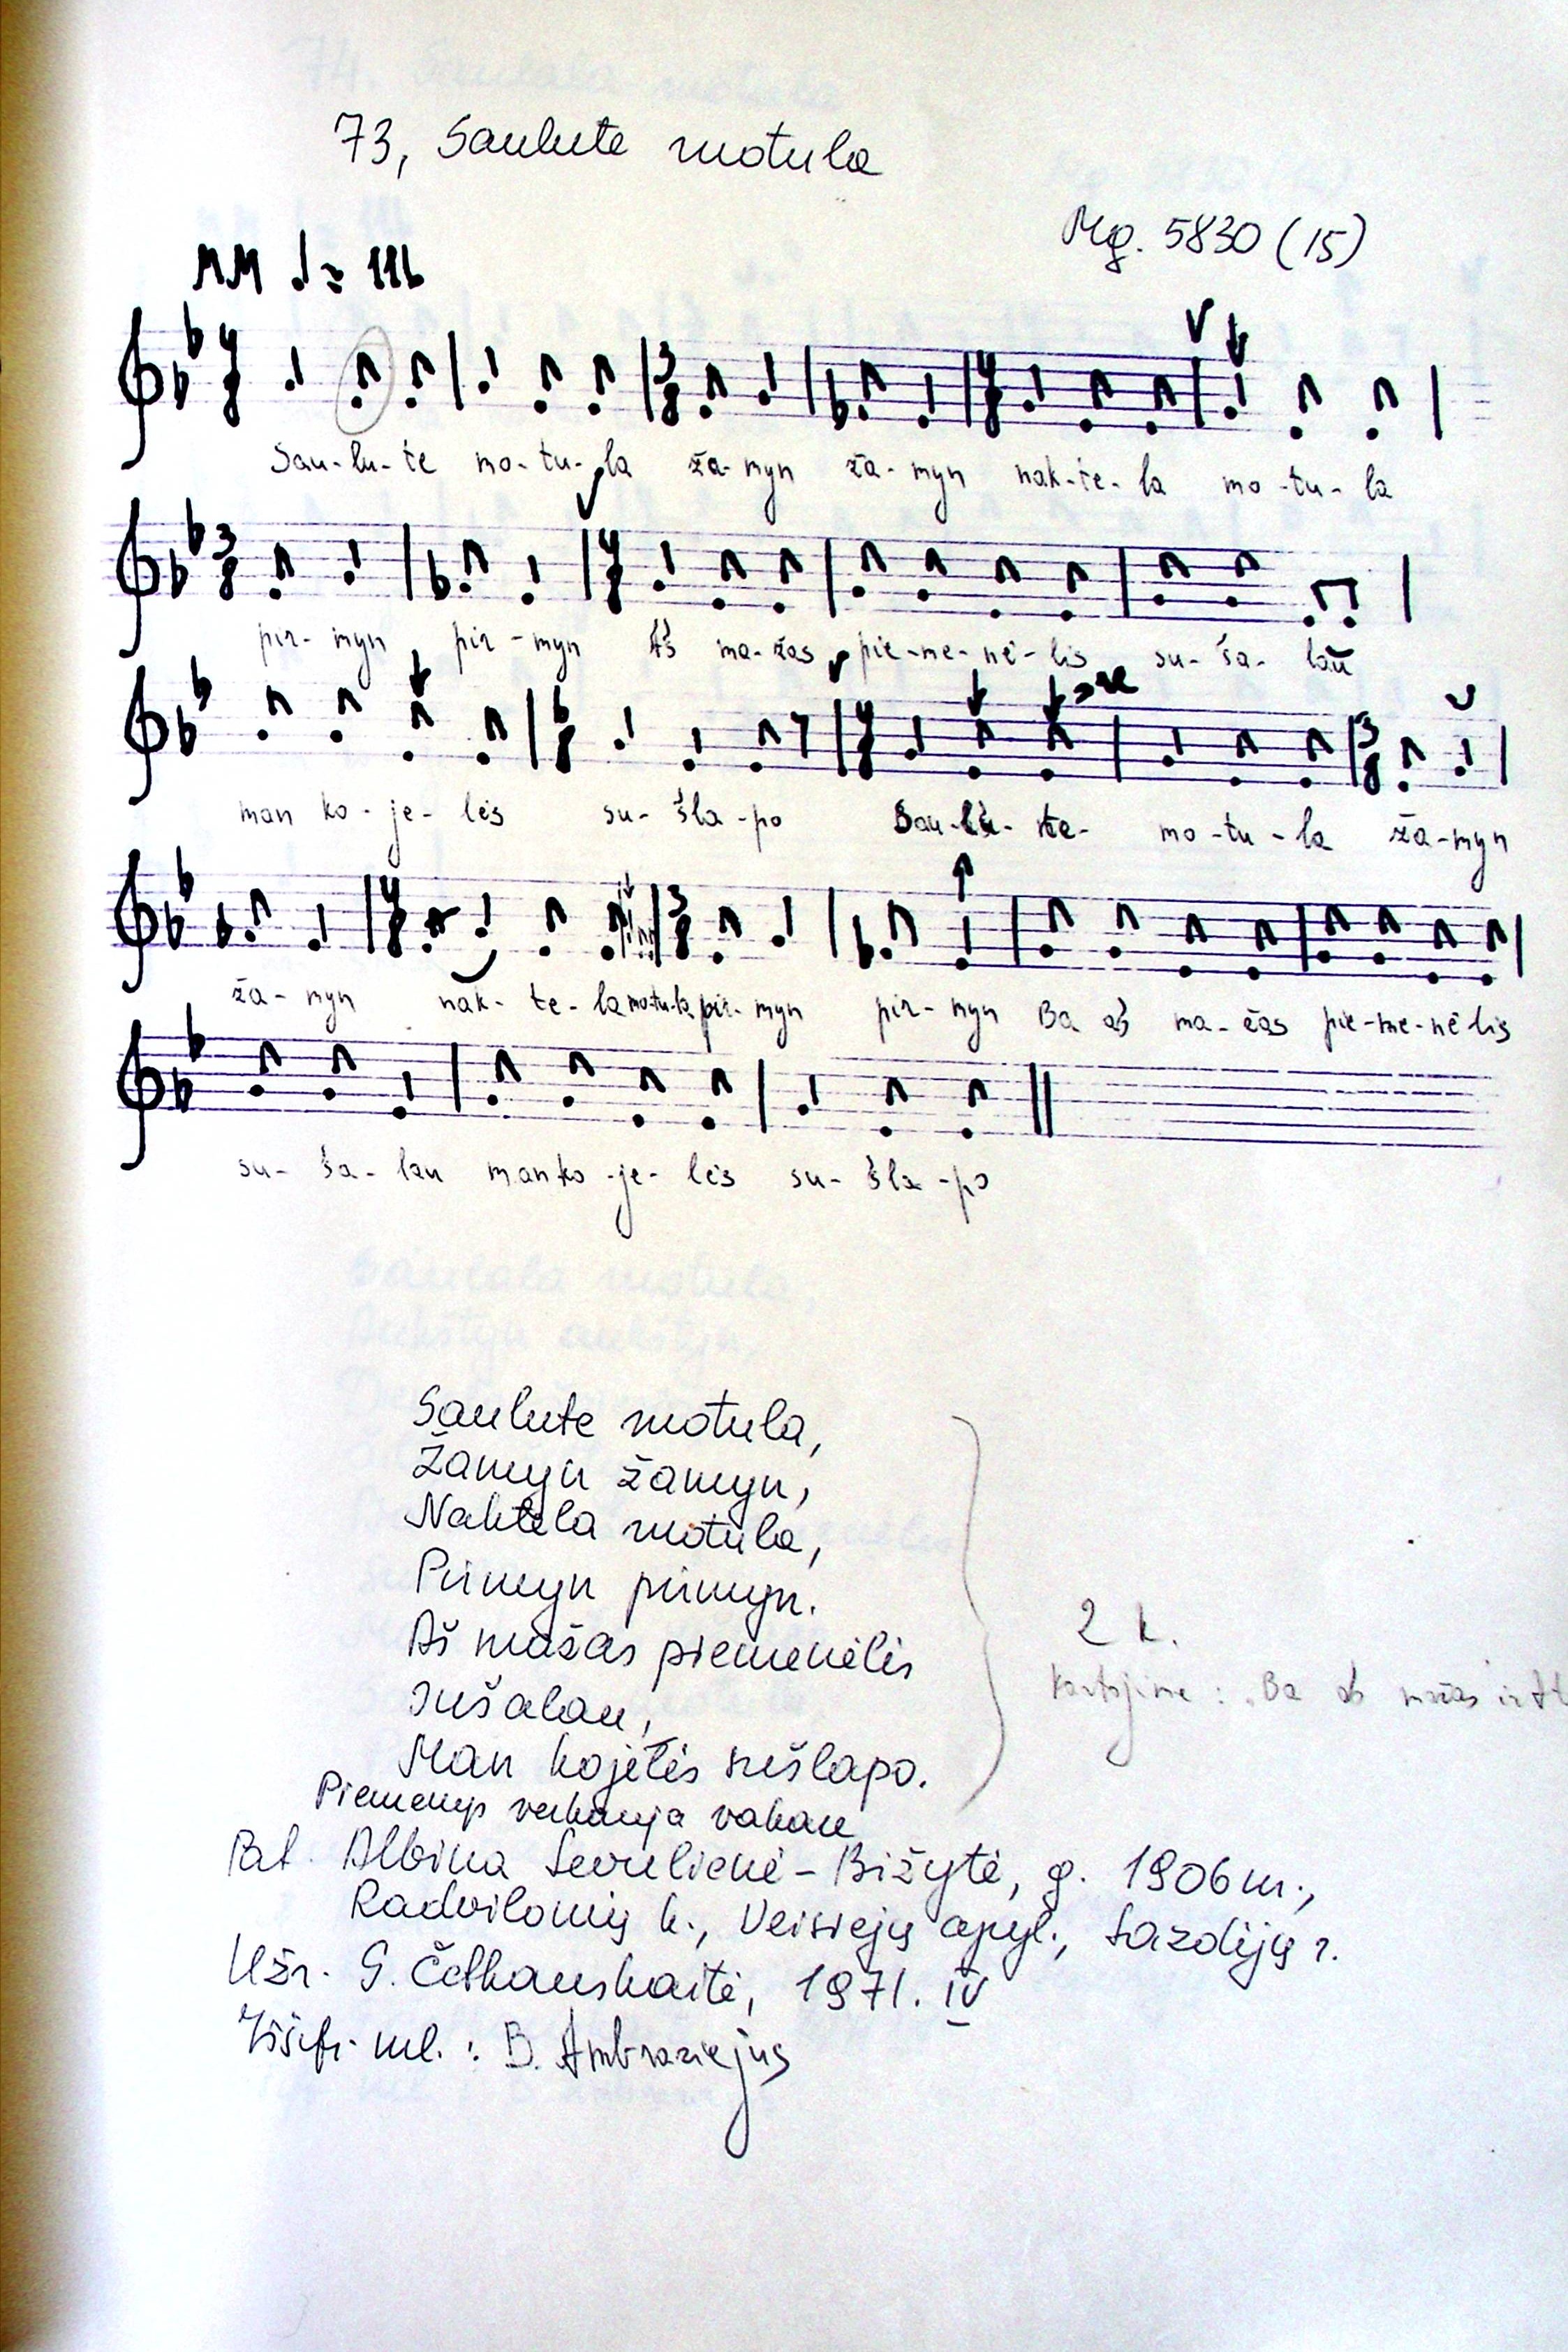 73, Saulute motula
Mg. 5830 (15)
MM ♩ = 116
Sau-lu-te mo-tu-la ža-myn ža-myn nak-te-la mo-tu-la
pir-myn pir-myn Aš ma-žas pie-me-nė-lis su-ša-lau
man ko-je-lės su-šla-po Sau-lu-te- mo-tu-la ža-myn
ža-myn nak-te-la mo-tu-la pir-myn pir-myn Ba aš ma-žas pie-me-nė-lis
su-ša-lau man ko-je-lės su-šla-po
Saulute motula,
Žamyn žamyn,
Naktela motula,
Pirmyn pirmyn.
Aš mažas piemenėlis
sušalau,
Man kojelės sušlapo.
2 k.
kartojime : „Ba aš mažas
Piemenys verkauja vakare
Pat. Albina Sevulienė-Bižytė, g. 1906 m.,
Radvilonių k., Veisiejų apyl., Lazdijų r.
Užr. G. Četkauskaitė, 1971. IV
Iššifr. mel. : B. Ambraziejus